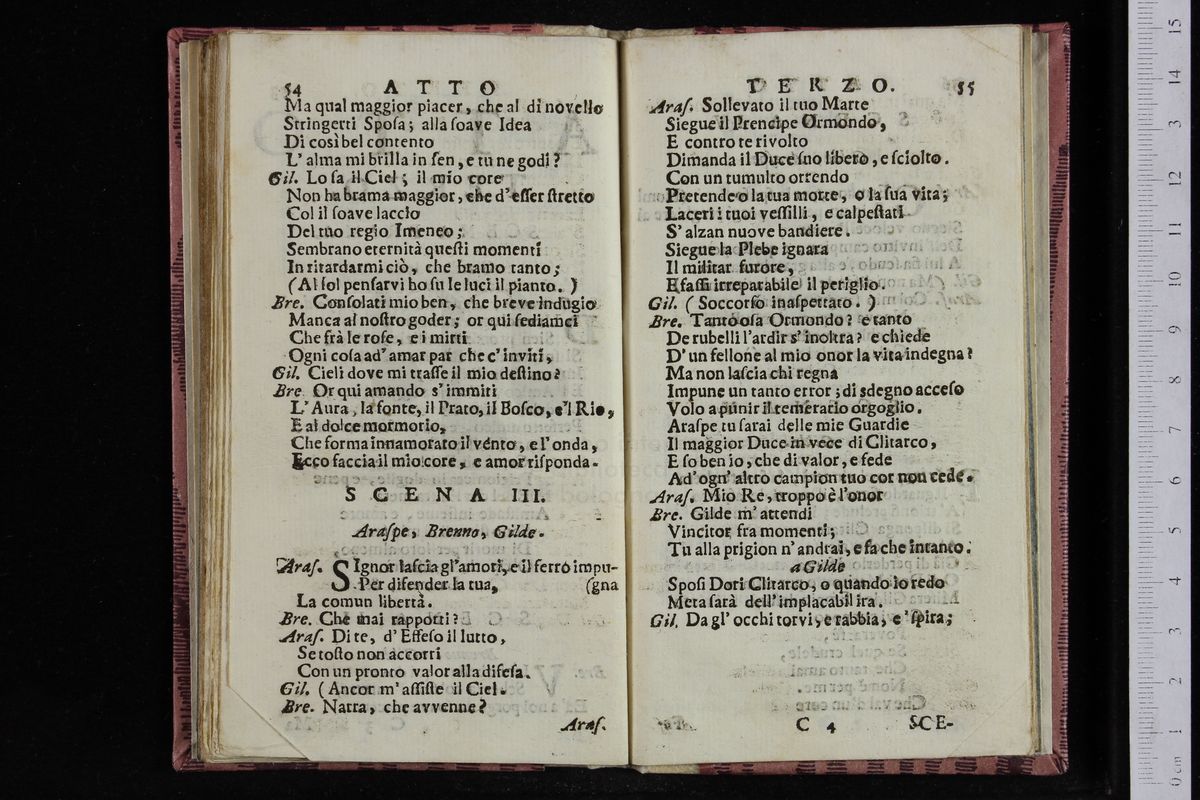 54 ATTO
Ma qual maggior piacer, che al di novello
Stringerti Sposa; alla ſoave Idea
Di così bel contento
L' alma mi brilla in ſen, e tu ne godi?
Gil. Lo ſa il Ciel; il mio core
Non ha brama maggior, che d' eſſer ſtretto
Col il ſoave laccio
Del tuo regio Imeneo;
Sembrano eternità queſti momenti
In ritardarmi ciò, che bramo tanto;
(Al ſol penſarvi ho ſu le luci il pianto.)
Bre. Conſolati mio ben, che breve indugio
Manca al noſtro goder; or qui ſediamci
Che frà le roſe, e i mirti
Ogni coſa ad' amar par che c' inviti,
Gil. Cieli dove mi traſſe il mio deſtino?
Bre Or qui amando s' immiti
L' Aura, la fonte, il Prato, il Boſco, e'l Rio,
E al dolce mormorio,
Che forma innamorato il vento, e l' onda,
Ecco faccia il mio core, e amor riſponda.
SCENA III.
Araſpe, Brenno, Gilde.
Araſ. SIgnor laſcia gl'amori, e il ferro impu-
Per difender la tua, (gna
La comun libertà.
Bre. Che mai rapporti?
Araſ. Di te, d' Effeſo il lutto,
Se toſto non accorri
Con un pronto valor alla difeſa.
Gil. (Ancor m' aſſiſte il Ciel.
Bre. Narra, che avvenne?
Araſ.
TERZO. 55
Araſ. Sollevato il tuo Marte
Siegue il Prencipe Ormondo,
E contro te rivolto
Dimanda il Duce ſuo libero, e ſciolto.
Con un tumulto orrendo
Pretende o la tua morte, o la ſua vita;
Laceri i tuoi veſſilli, e calpeſtati
S' alzan nuove bandiere.
Siegue la Plebe ignara
Il militar furore,
E faſſi irreparabile il periglio.
Gil. (Soccorſo inaſpettato.)
Bre. Tanto oſa Ormondo? e tanto
De rubelli l'ardir s' inoltra? e chiede
D' un fellone al mio onor la vita indegna?
Ma non laſcia chi regna
Impune un tanto error; di sdegno acceſo
Volo a punir il temerario orgoglio.
Araſpe tu ſarai delle mie Guardie
Il maggior Duce in vece di Clitarco,
E ſo ben io, che di valor, e fede
Ad' ogn' altro campion tuo cor non cede.
Araſ. Mio Re, troppo è l'onor
Bre. Gilde m' attendi
Vincitor fra momenti;
Tu alla prigion n' andrai, e fa che intanto.
a Gilde
Spoſi Dori Clitarco, o quando io redo
Meta ſarà dell' implacabil ira.
Gil. Da gl' occhi torvi, e rabbia, e' ſpira;
C 4 SCE-